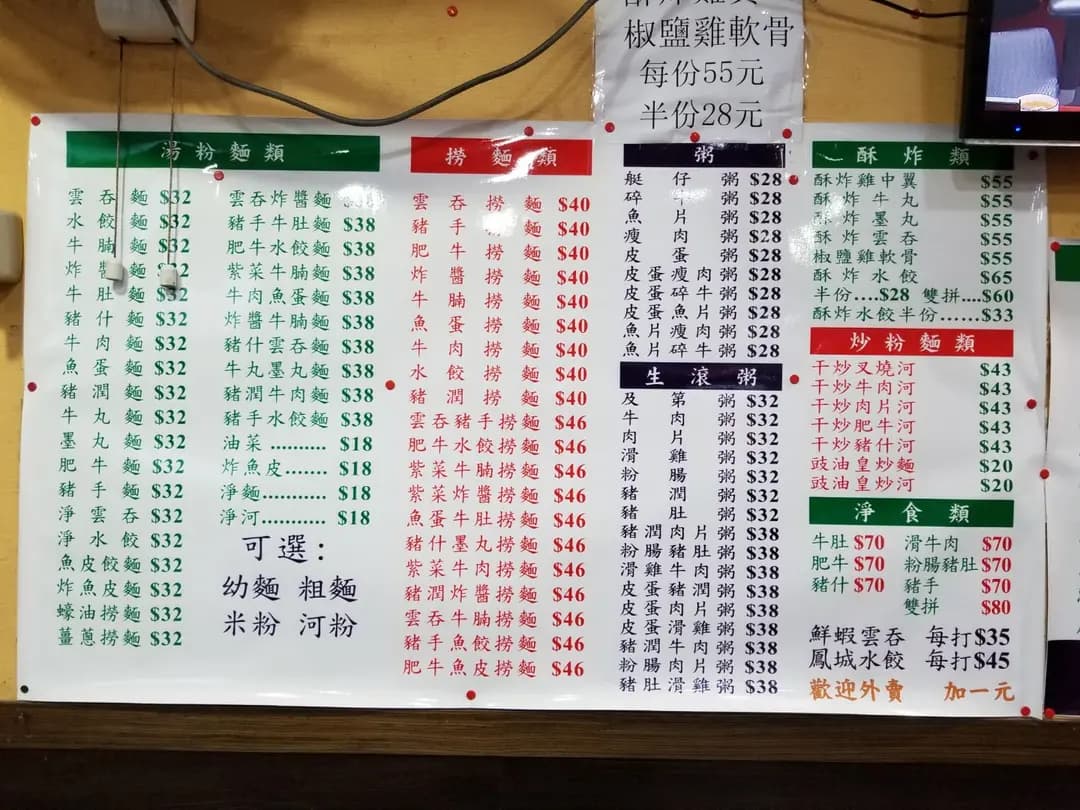 椒鹽雞軟骨
每份55元
半份28元
湯粉麵類
雲吞麵 $32
水餃麵 $32
牛腩麵 $32
炸醬麵 $32
牛肚麵 $32
豬什麵 $32
牛肉麵 $32
魚蛋麵 $32
豬潤麵 $32
牛丸麵 $32
墨丸麵 $32
肥牛麵 $32
豬手麵 $32
淨雲吞 $32
淨水餃 $32
魚皮餃麵 $32
炸魚皮麵 $32
蠔油撈麵 $32
薑蔥撈麵 $32
雲吞炸醬麵
豬手牛肚麵 $38
肥牛水餃麵 $38
紫菜牛腩麵 $38
牛肉魚蛋麵 $38
炸醬牛腩麵 $38
豬什雲吞麵 $38
牛丸墨丸麵 $38
豬潤牛肉麵 $38
豬手水餃麵 $38
油菜........... $18
炸魚皮....... $18
淨麵............ $18
淨河............ $18
可選：
幼麵 粗麵
米粉 河粉
撈麵類
雲吞撈麵 $40
豬手撈麵 $40
肥牛撈麵 $40
炸醬撈麵 $40
牛腩撈麵 $40
魚蛋撈麵 $40
牛肉撈麵 $40
水餃撈麵 $40
豬潤撈麵 $40
雲吞豬手撈麵 $46
肥牛水餃撈麵 $46
紫菜牛腩撈麵 $46
紫菜炸醬撈麵 $46
魚蛋牛肚撈麵 $46
豬什墨丸撈麵 $46
紫菜牛肉撈麵 $46
豬潤炸醬撈麵 $46
雲吞牛腩撈麵 $46
豬手魚餃撈麵 $46
肥牛魚皮撈麵 $46
粥
艇仔粥 $28
碎牛粥 $28
魚片粥 $28
瘦肉粥 $28
皮蛋粥 $28
皮蛋瘦肉粥 $28
皮蛋碎牛粥 $28
皮蛋魚片粥 $28
魚片瘦肉粥 $28
魚片碎牛粥 $28
生滾粥
及第粥 $32
牛肉粥 $32
肉片粥 $32
滑雞粥 $32
粉腸粥 $32
豬潤粥 $32
豬肚粥 $32
豬潤肉片粥 $38
粉腸豬肚粥 $38
滑雞牛肉粥 $38
皮蛋豬潤粥 $38
皮蛋肉片粥 $38
皮蛋滑雞粥 $38
豬潤牛肉粥 $38
粉腸肉片粥 $38
豬肚滑雞粥 $38
酥炸類
酥炸雞中翼 $55
酥炸牛丸 $55
酥炸墨丸 $55
酥炸雲吞 $55
椒鹽雞軟骨 $55
酥炸水餃 $65
半份....$28 雙拼....$60
酥炸水餃半份......$33
炒粉麵類
干炒叉燒河 $43
干炒牛肉河 $43
干炒肉片河 $43
干炒肥牛河 $43
干炒豬什河 $43
豉油皇炒麵 $20
豉油皇炒河 $20
淨食類
牛肚 $70 滑牛肉 $70
肥牛 $70 粉腸豬肚 $70
豬什 $70 豬手 $70
雙拼 $80
鮮蝦雲吞 每打$35
鳳城水餃 每打$45
歡迎外賣 加一元